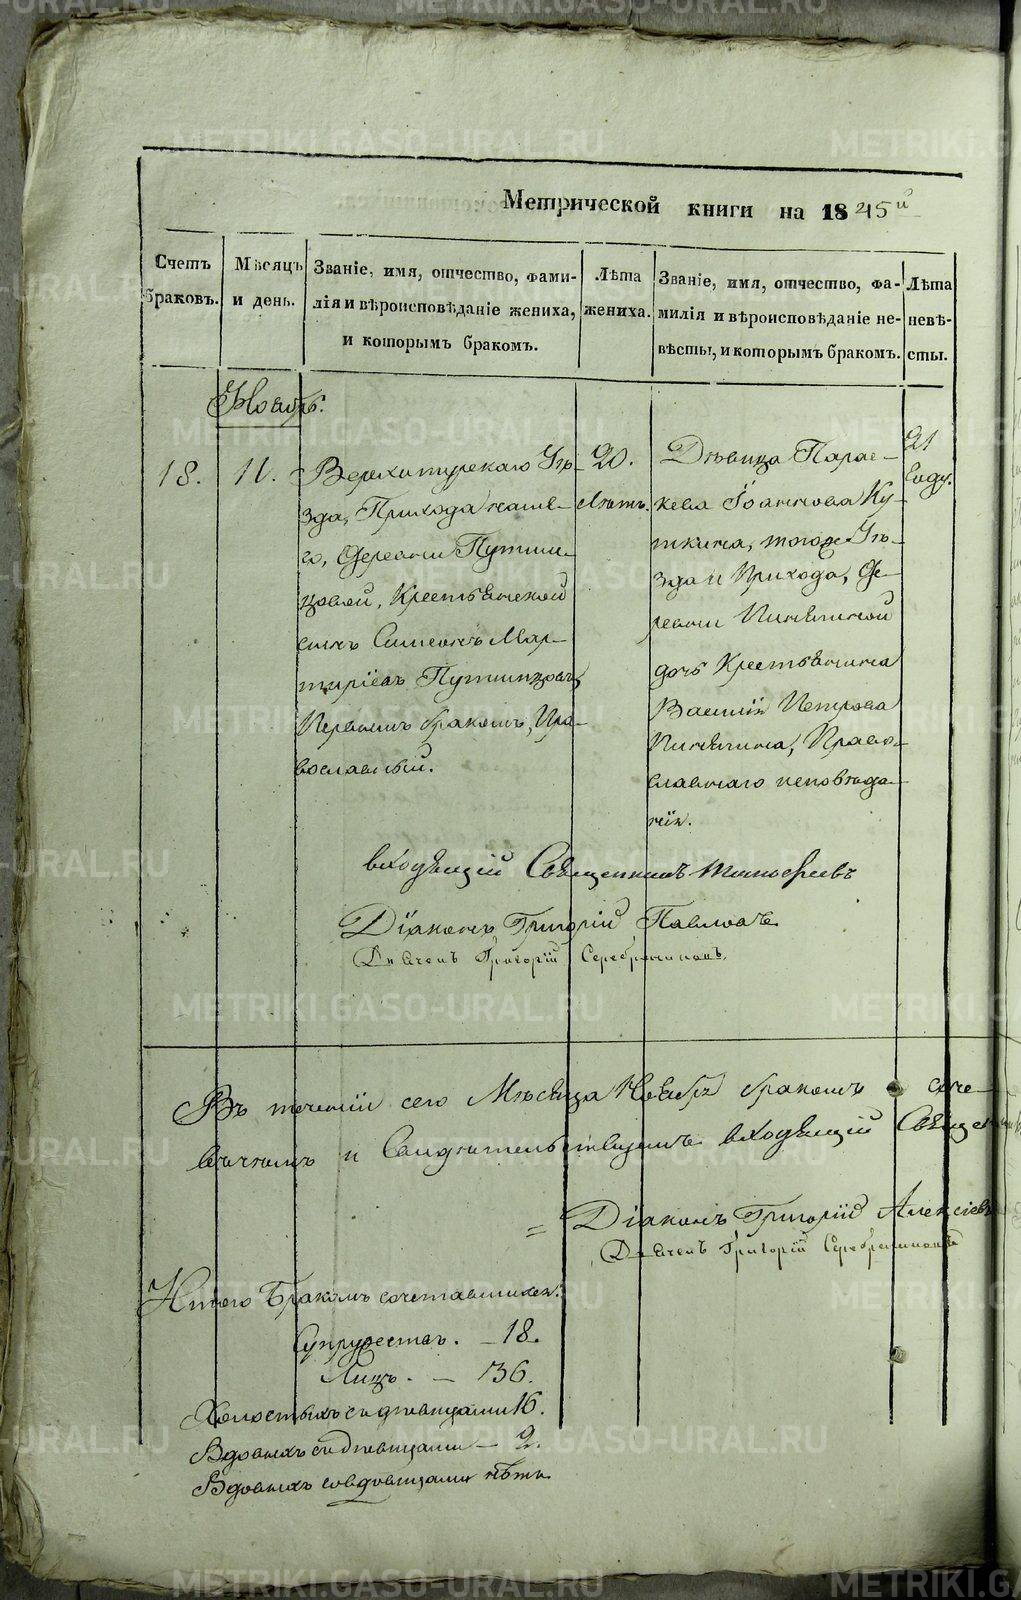 Метрической книги на 1845й
Счетъ браковъ.
Мѣсяцъ и день.
Званіе, имя, отчество, фами-
лія и вѣроисповѣданіе жениха,
и которымъ бракомъ.
Лѣта жениха.
Званіе, имя, отчество, фа-
милія и вѣроисповѣданіе не-
вѣсты, и которымъ бракомъ.
Лѣта невѣ-
сты.
Ноябрь.
18.
11.
Верхотурскаго Уѣ-
зда, Прихода наше-
го, Деревни Путими-
цовой, Крестьянской
сынъ Симеонъ Мар-
тиріевъ Путимцовъ,
Первымъ бракомъ, Пра-
вославный.
20.
Лѣтъ.
Дѣвица Парас-
кева Іоаннова Ку-
ткина, тогоже Уѣ-
зда и Прихода, Де-
ревни
дочь Крестьянина
Василія Петрова
Право-
славнаго исповѣда-
нія.
21
Году.
входящій Священникъ Тимофеевъ
Діаконъ Григорій Павловъ
Дьячекъ Григорій Серебрениковъ
Въ теченіи сего Мѣсяца Ноября бракомъ соче-
и Свидѣтельствуемъ входящій Священ
= Діаконъ Григорій Алексіевъ
Дьячекъ Григорій Серебрениковъ
Итого Бракомъ сочетавшихся:
Супружествъ. — 18.
Лицъ. — 36.
Холостыхъ съ дѣвицами 16.
Вдовыхъ съ дѣвицами — 2.
Вдовыхъ совдовицами нѣтъ
METRIKI.GASO-URAL.RU